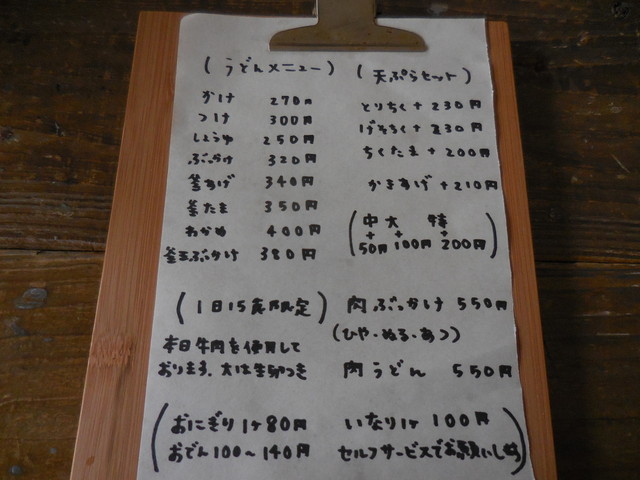 (うどんメニュー)
かけ 270円
つけ 300円
しょうゆ 250円
ぶっかけ 320円
釜あげ 340円
釜たま 350円
わかめ 400円
釜玉ぶかけ 380円
(天ぷらセット)
とりちく+230円
げそちく+230円
ちくたま+200円
かきあげ+210円
(中 大 特
+ + +
50円 100円 200円)
(1日15食限定)
本日牛肉を使用して
おります。大は生卵つき
肉ぶっかけ 550円
(ひや・ぬる・あつ)
肉うどん 550円
(おにぎり1ヶ80円 いなり1ヶ 100円
おでん100~140円 セルフサービスでお願いします)